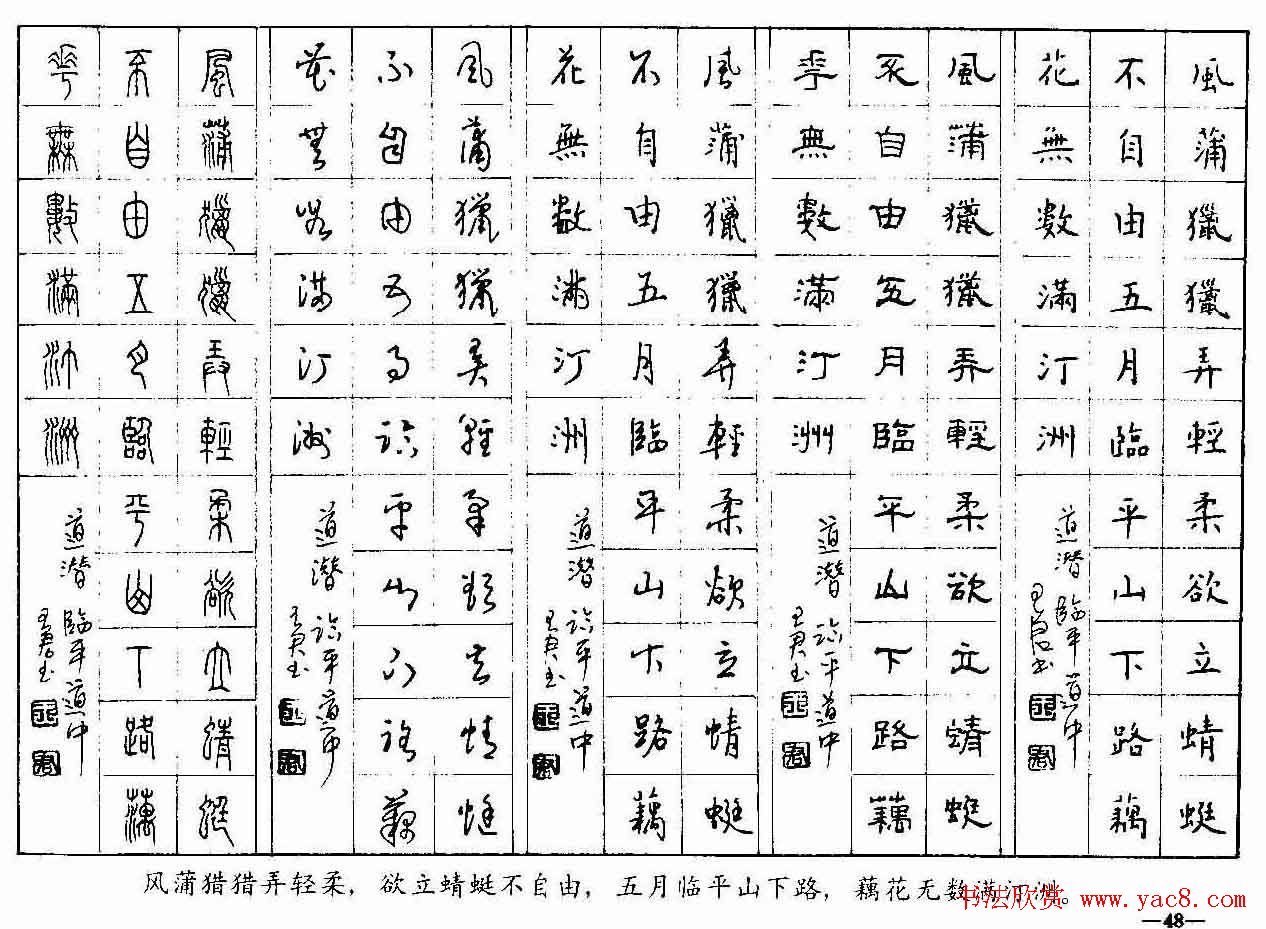 風蒲獵獵弄輕柔欲立蜻蜓
不自由五月臨平山下路藕
花無數滿汀洲
道潜 臨平道中
風蒲獵獵弄輕柔欲立蜻蜓
不自由五月臨平山下路藕
華無數滿汀洲
道潜 臨平道中
風蒲獵獵弄輕柔欲立蜻蜓
不自由五月臨平山下路藕
花無數滿汀洲
道潜 臨平道中
風蒲獵獵弄輕柔欲立蜻蜓
不自由五月臨平山下路藕
花無數滿汀洲
道潜 臨平道中
風蒲獵獵弄輕柔欲立蜻蜓
不自由五月臨平山下路藕
華無數滿汀洲
道潜 臨平道中
风蒲猎猎弄轻柔，欲立蜻蜓不自由，五月临平山下路，藕花无数满汀洲。
书法欣赏 www.yac8.com
—48—